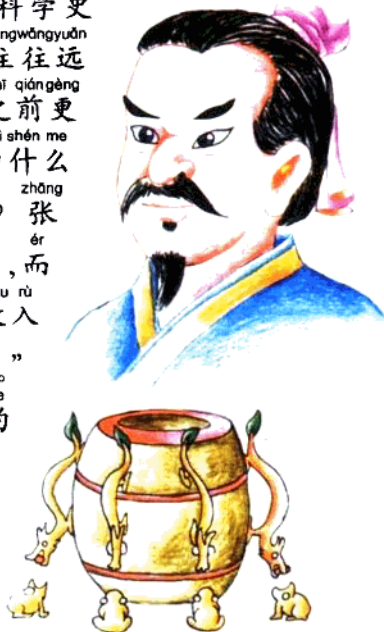 科学更
ngwǎngyuǎn
往往远
qiángèng
之前更
shén me
什么
zhāng
张
ér
,而
rù
入
”
的